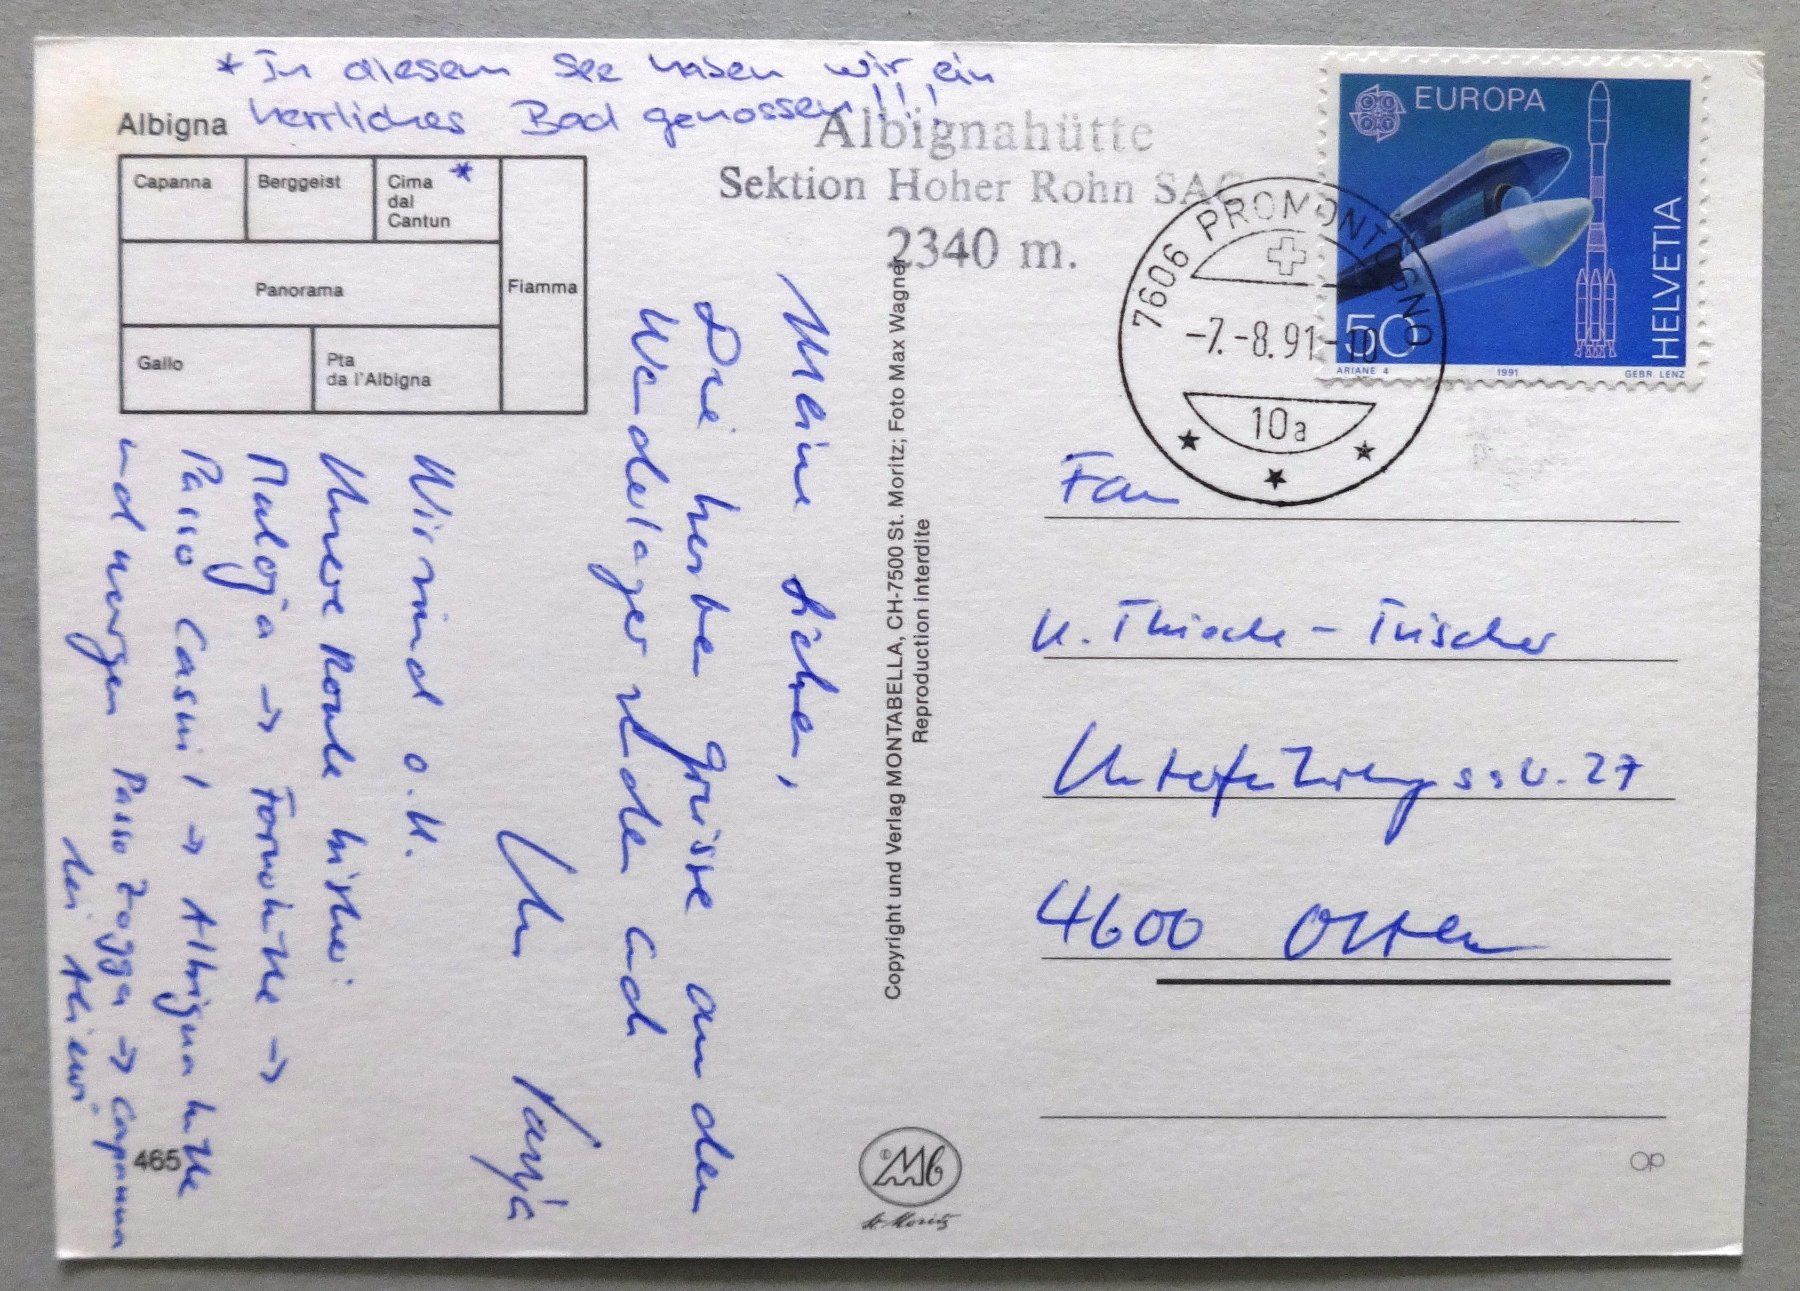 * In diesem See haben wir ein
herrliches Bad genossen!!!
Albigna
Capanna
Berggeist
Cima
dal
Cantun
*
Panorama
Fiamma
Gallo
Pta
da l'Albigna
Albignahütte
Sektion Hoher Rohn SAC
2340 m.
Meine Lieben,
Die herbe Grüsse an den
Wanderlager senden
Wir sind o.k.
Unsere Route bisher:
Maloja → Fornohütte →
Passo Casnil → Albignahütte
und morgen Passo Zogga → Capanna
465
Copyright und Verlag MONTABELLA, CH-7500 St. Moritz; Foto Max Wagner
Reproduction interdite
Mb
St. Moritz
EUROPA
HELVETIA
50
ARIANE 4
1991
GEBR. LENZ
7606 PROMONTOGNO
-7.-8.91-10
10a
Fam
Unterführungsstr. 27
4600 Olten